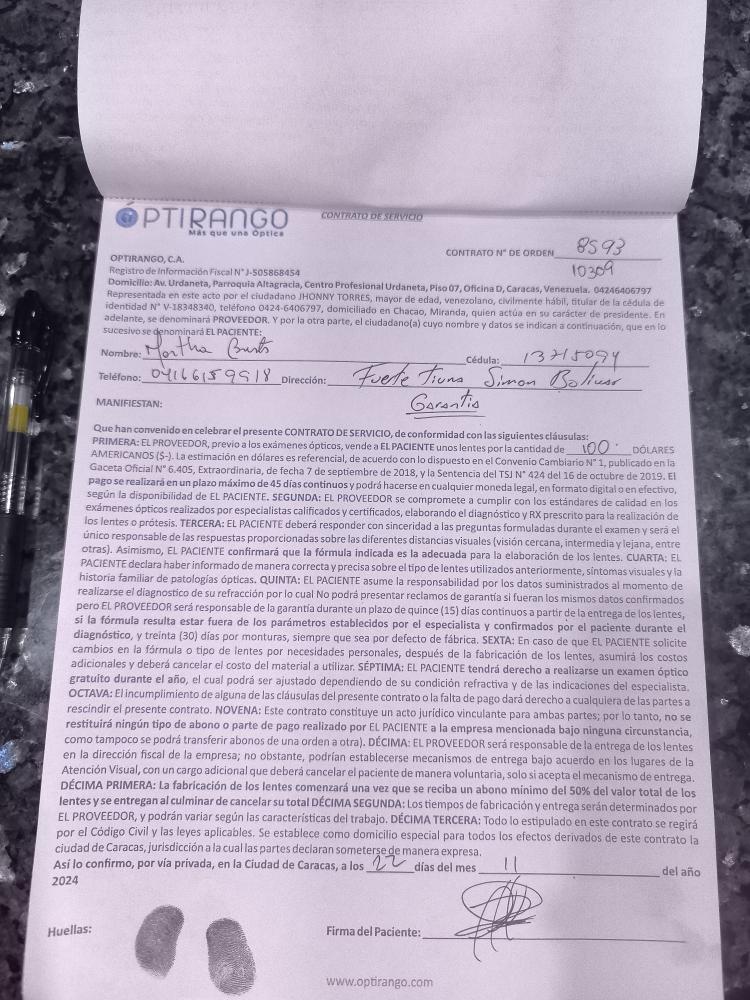 OPTIRANGO
Más que una Óptica
CONTRATO DE SERVICIO
CONTRATO N° DE ORDEN 8593
10309
OPTIRANGO, C.A.
Registro de Información Fiscal N° J-505868454
Domicilio: Av. Urdaneta, Parroquia Altagracia, Centro Profesional Urdaneta, Piso 07, Oficina D, Caracas, Venezuela. 04246406797
Representada en este acto por el ciudadano JHONNY TORRES, mayor de edad, venezolano, civilmente hábil, titular de la cédula de
identidad N° V-18348340, teléfono 0424-6406797, domiciliado en Chacao, Miranda, quien actúa en su carácter de presidente. En
adelante, se denominará PROVEEDOR. Y por la otra parte, el ciudadano(a) cuyo nombre y datos se indican a continuación, que en lo
sucesivo se denominará EL PACIENTE:
Nombre: Martha Cédula: 13715094
Teléfono: 04166159918 Dirección: Fuerte Tiuna Simon Bolivar
MANIFIESTAN: Garantia
Que han convenido en celebrar el presente CONTRATO DE SERVICIO, de conformidad con las siguientes cláusulas:
PRIMERA: EL PROVEEDOR, previo a los exámenes ópticos, vende a EL PACIENTE unos lentes por la cantidad de 100 DÓLARES
AMERICANOS ($-). La estimación en dólares es referencial, de acuerdo con lo dispuesto en el Convenio Cambiario N° 1, publicado en la
Gaceta Oficial N° 6.405, Extraordinaria, de fecha 7 de septiembre de 2018, y la Sentencia del TSJ N° 424 del 16 de octubre de 2019. El
pago se realizará en un plazo máximo de 45 días continuos y podrá hacerse en cualquier moneda legal, en formato digital o en efectivo,
según la disponibilidad de EL PACIENTE. SEGUNDA: EL PROVEEDOR se compromete a cumplir con los estándares de calidad en los
exámenes ópticos realizados por especialistas calificados y certificados, elaborando el diagnóstico y RX prescrito para la realización de
los lentes o prótesis. TERCERA: EL PACIENTE deberá responder con sinceridad a las preguntas formuladas durante el examen y será el
único responsable de las respuestas proporcionadas sobre las diferentes distancias visuales (visión cercana, intermedia y lejana, entre
otras). Asimismo, EL PACIENTE confirmará que la fórmula indicada es la adecuada para la elaboración de los lentes. CUARTA: EL
PACIENTE declara haber informado de manera correcta y precisa sobre el tipo de lentes utilizados anteriormente, síntomas visuales y la
historia familiar de patologías ópticas. QUINTA: EL PACIENTE asume la responsabilidad por los datos suministrados al momento de
realizarse el diagnostico de su refracción por lo cual No podrá presentar reclamos de garantía si fueran los mismos datos confirmados
pero EL PROVEEDOR será responsable de la garantía durante un plazo de quince (15) días continuos a partir de la entrega de los lentes,
si la fórmula resulta estar fuera de los parámetros establecidos por el especialista y confirmados por el paciente durante el
diagnóstico, y treinta (30) días por monturas, siempre que sea por defecto de fábrica. SEXTA: En caso de que EL PACIENTE solicite
cambios en la fórmula o tipo de lentes por necesidades personales, después de la fabricación de los lentes, asumirá los costos
adicionales y deberá cancelar el costo del material a utilizar. SÉPTIMA: EL PACIENTE tendrá derecho a realizarse un examen óptico
gratuito durante el año, el cual podrá ser ajustado dependiendo de su condición refractiva y de las indicaciones del especialista.
OCTAVA: El incumplimiento de alguna de las cláusulas del presente contrato o la falta de pago dará derecho a cualquiera de las partes a
rescindir el presente contrato. NOVENA: Este contrato constituye un acto jurídico vinculante para ambas partes; por lo tanto, no se
restituirá ningún tipo de abono o parte de pago realizado por EL PACIENTE a la empresa mencionada bajo ninguna circunstancia,
como tampoco se podrá transferir abonos de una orden a otra). DÉCIMA: EL PROVEEDOR será responsable de la entrega de los lentes
en la dirección fiscal de la empresa; no obstante, podrían establecerse mecanismos de entrega bajo acuerdo en los lugares de la
Atención Visual, con un cargo adicional que deberá cancelar el paciente de manera voluntaria, solo si acepta el mecanismo de entrega.
DÉCIMA PRIMERA: La fabricación de los lentes comenzará una vez que se reciba un abono mínimo del 50% del valor total de los
lentes y se entregan al culminar de cancelar su total DÉCIMA SEGUNDA: Los tiempos de fabricación y entrega serán determinados por
EL PROVEEDOR, y podrán variar según las características del trabajo. DÉCIMA TERCERA: Todo lo estipulado en este contrato se regirá
por el Código Civil y las leyes aplicables. Se establece como domicilio especial para todos los efectos derivados de este contrato la
ciudad de Caracas, jurisdicción a la cual las partes declaran someterse de manera expresa.
Así lo confirmo, por vía privada, en la Ciudad de Caracas, a los 22 días del mes 11 del año
2024
Huellas: Firma del Paciente:
www.optirango.com